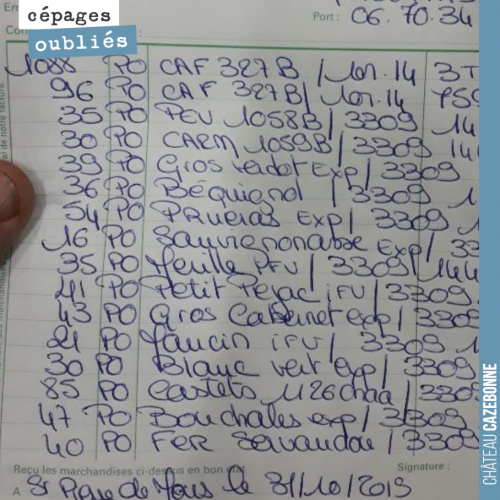 cépages
oubliés
Port : 06.70.34
1088 PO CAF 327B / 101.14 3T
96 PO CAF 327B / 101.14
35 PO PEV 1058B / 3309 14
30 PO CARM 1059B / 3309 144
39 PO Gros Verdot Exp / 3309
36 PO Béquignol / 3309 1
54 PO Prueras Exp / 3309
16 PO Sauvignonasse Exp / 33
35 PO Mérille PFV / 3309 144
41 PO Petit Péjac iFV / 3309
43 PO Gros Cabernet exp / 3309
21 PO Jaucin iFV / 3309 1
30 PO Blanc vert Exp / 3309
85 PO Castets 1126 / 3309
47 PO Bouchales exp / 3309
40 PO FER Servandou / 3309
Reçu les marchandises ci-dessus en bon état
Signature :
A St Pierre de Mons le 31/10/2019
CHÂTEAU CAZEBONNE